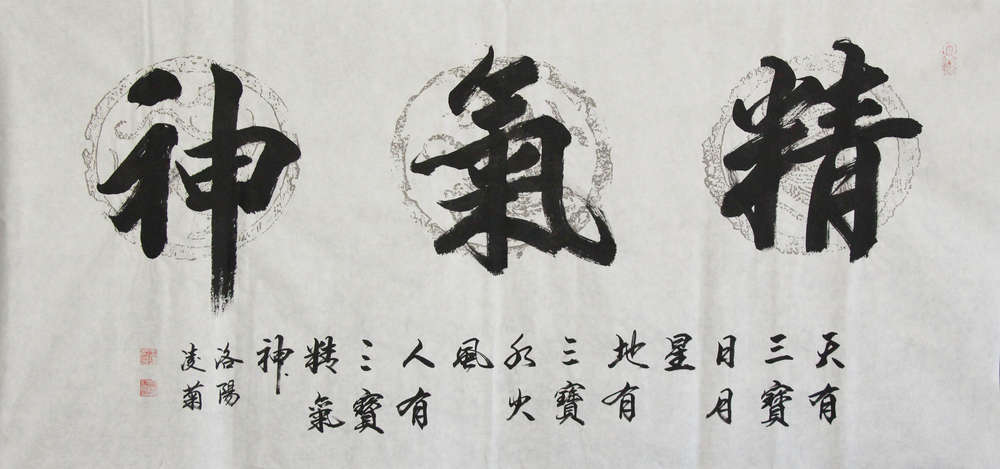 精氣神
天有
三寶
日月
星
地有
三寶
水火
風
人有
三寶
精氣
神
洛陽
凌菊